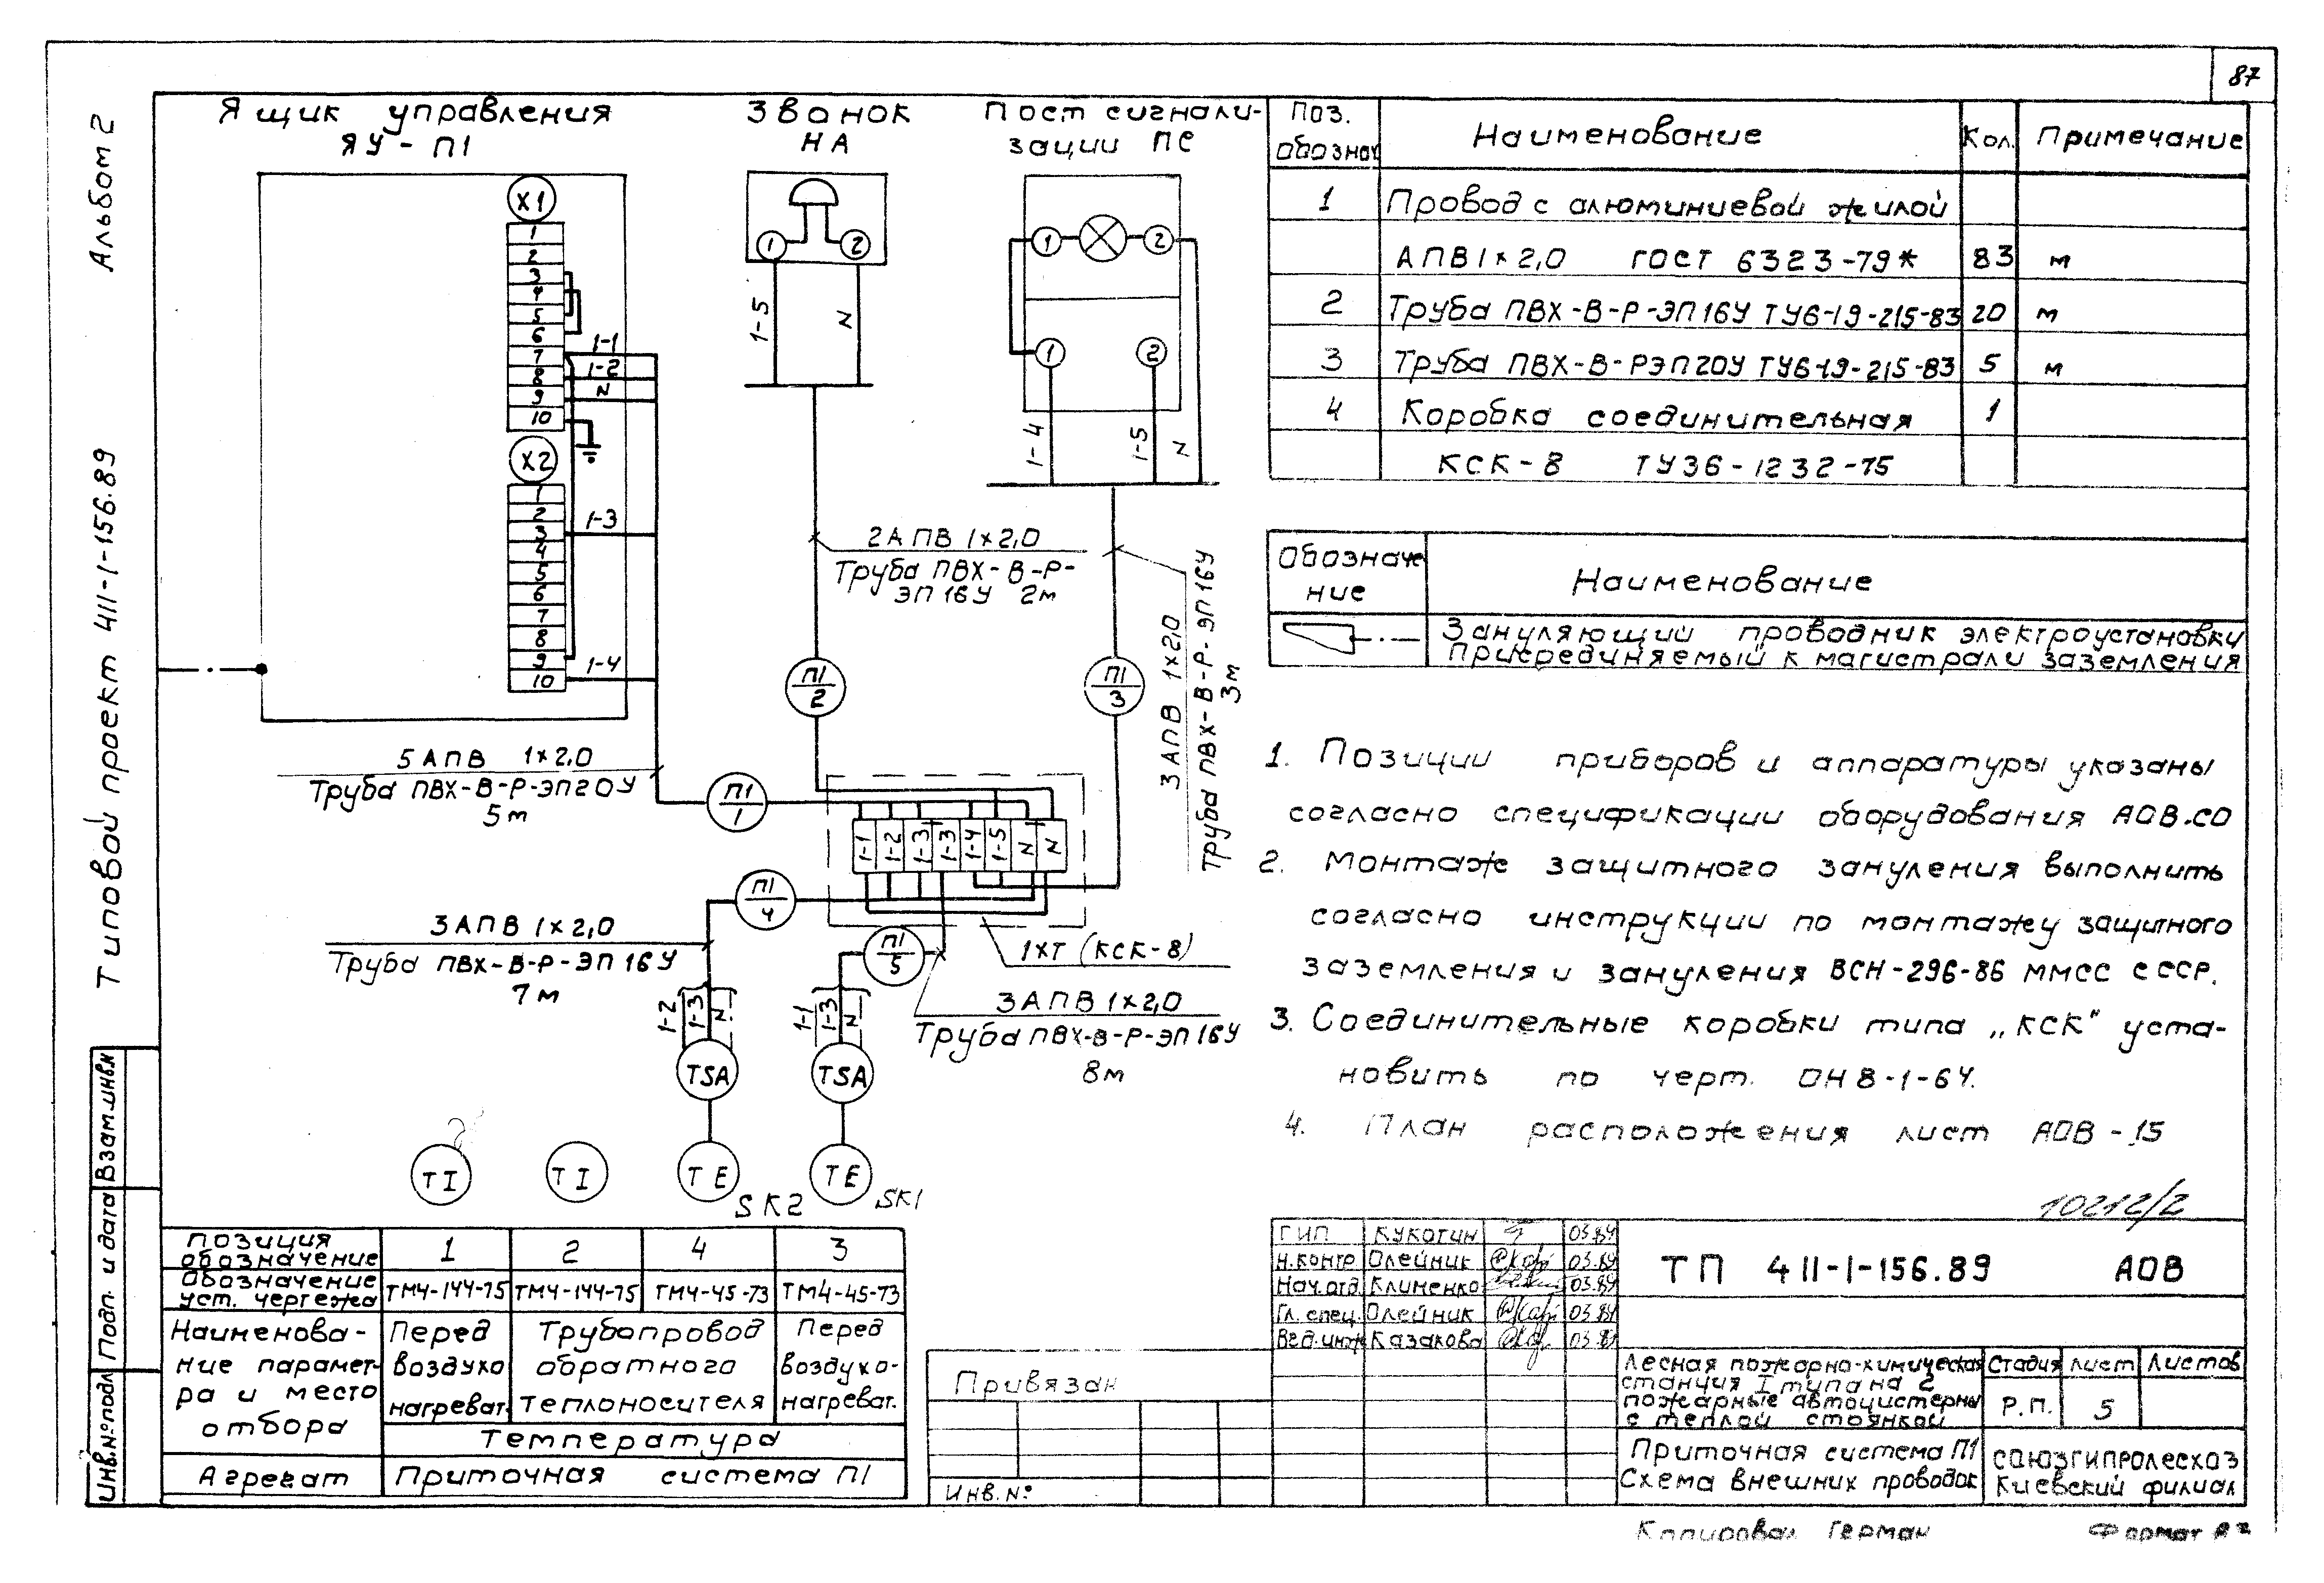 87
Альбом 2
Типовой проект 411-1-156.89
Взам.инв.№
Подп. и дата
Инв.№подл
Ящик управления
ЯУ-П1
Звонок
НА
Пост сигнали-
зации ПС
X1
1
2
3
4
5
6
7
8
9
10
1-1
1-2
N
X2
1
2
3
4
5
6
7
8
9
10
1-3
1-4
1
2
1-5
N
1
2
1
2
1-4
1-5
N
2АПВ 1×2,0
Труба ПВХ-В-Р-
ЭП16У 2м
3 АПВ 1×2,0
Труба ПВХ-В-Р-ЭП16У
3м
П1
2
П1
3
5АПВ 1×2,0
Труба ПВХ-В-Р-ЭП20У
5м
П1
1
1-1
1-2
1-3
1-3
1-4
1-5
N
N
П1
4
3АПВ 1×2,0
Труба ПВХ-В-Р-ЭП16У
7м
П1
5
1ХТ (КСК-8)
3АПВ 1×2,0
Труба ПВХ-В-Р-ЭП16У
8м
1-2
1-3
N
1-1
1-3
N
TSA
TSA
TI
TI
TE
SK2
TE
SK1
Поз. обознач
Наименование
Кол.
Примечание
1
Провод с алюминиевой жилой
АПВ1×2,0 ГОСТ 6323-79* 83 м
2 Труба ПВХ-В-Р-ЭП16У ТУ6-19-215-83 20 м
3 Труба ПВХ-В-РЭП20У ТУ6-19-215-83 5 м
4 Коробка соединительная 1
КСК-8 ТУ36-1232-75
Обозначе
ние
Наименование
Зануляющий проводник электроустановки
Присрединяемый к магистрали заземления
1. Позиции приборов и аппаратуры указаны
согласно спецификации оборудования АОВ.СО
2. Монтаж защитного зануления выполнить
согласно инструкции по монтажу защитного
заземления и зануления ВСН-296-86 ММСС СССР.
3. Соединительные коробки типа „КСК" уста-
новить по черт. ОН8-1-64.
4. План расположения лист АОВ-15
10212/2
Позиция
обозначение
1
2
4
3
Обозначение
уст. чертежа
ТМ4-144-75
ТМ4-144-75
ТМ4-45-73
ТМ4-45-73
Наименова-
ние парамет-
ра и место
отбора
Перед
воздухо
нагреват.
Трубопровод
обратного
теплоносителя
Перед
воздухо-
нагреват.
Температура
Агрегат
Приточная система П1
Привязан
Инв.№
ГИП Кукотин 03.89
Н.контр Олейник 03.89
Нач.отд. Клименко 03.89
Гл. спец. Олейник 03.89
Вед.инж Казакова 03.89
ТП 411-1-156.89 АОВ
Лесная пожарно-химическая
станция I типа на 2
пожарные автоцистерны
с теплой стоянкой
Стадия
Лист
Листов
Р.П.
5
Приточная система П1
Схема внешних проводок
Союзгипролесхоз
Киевский филиал
Копировал Герман
Формат А2